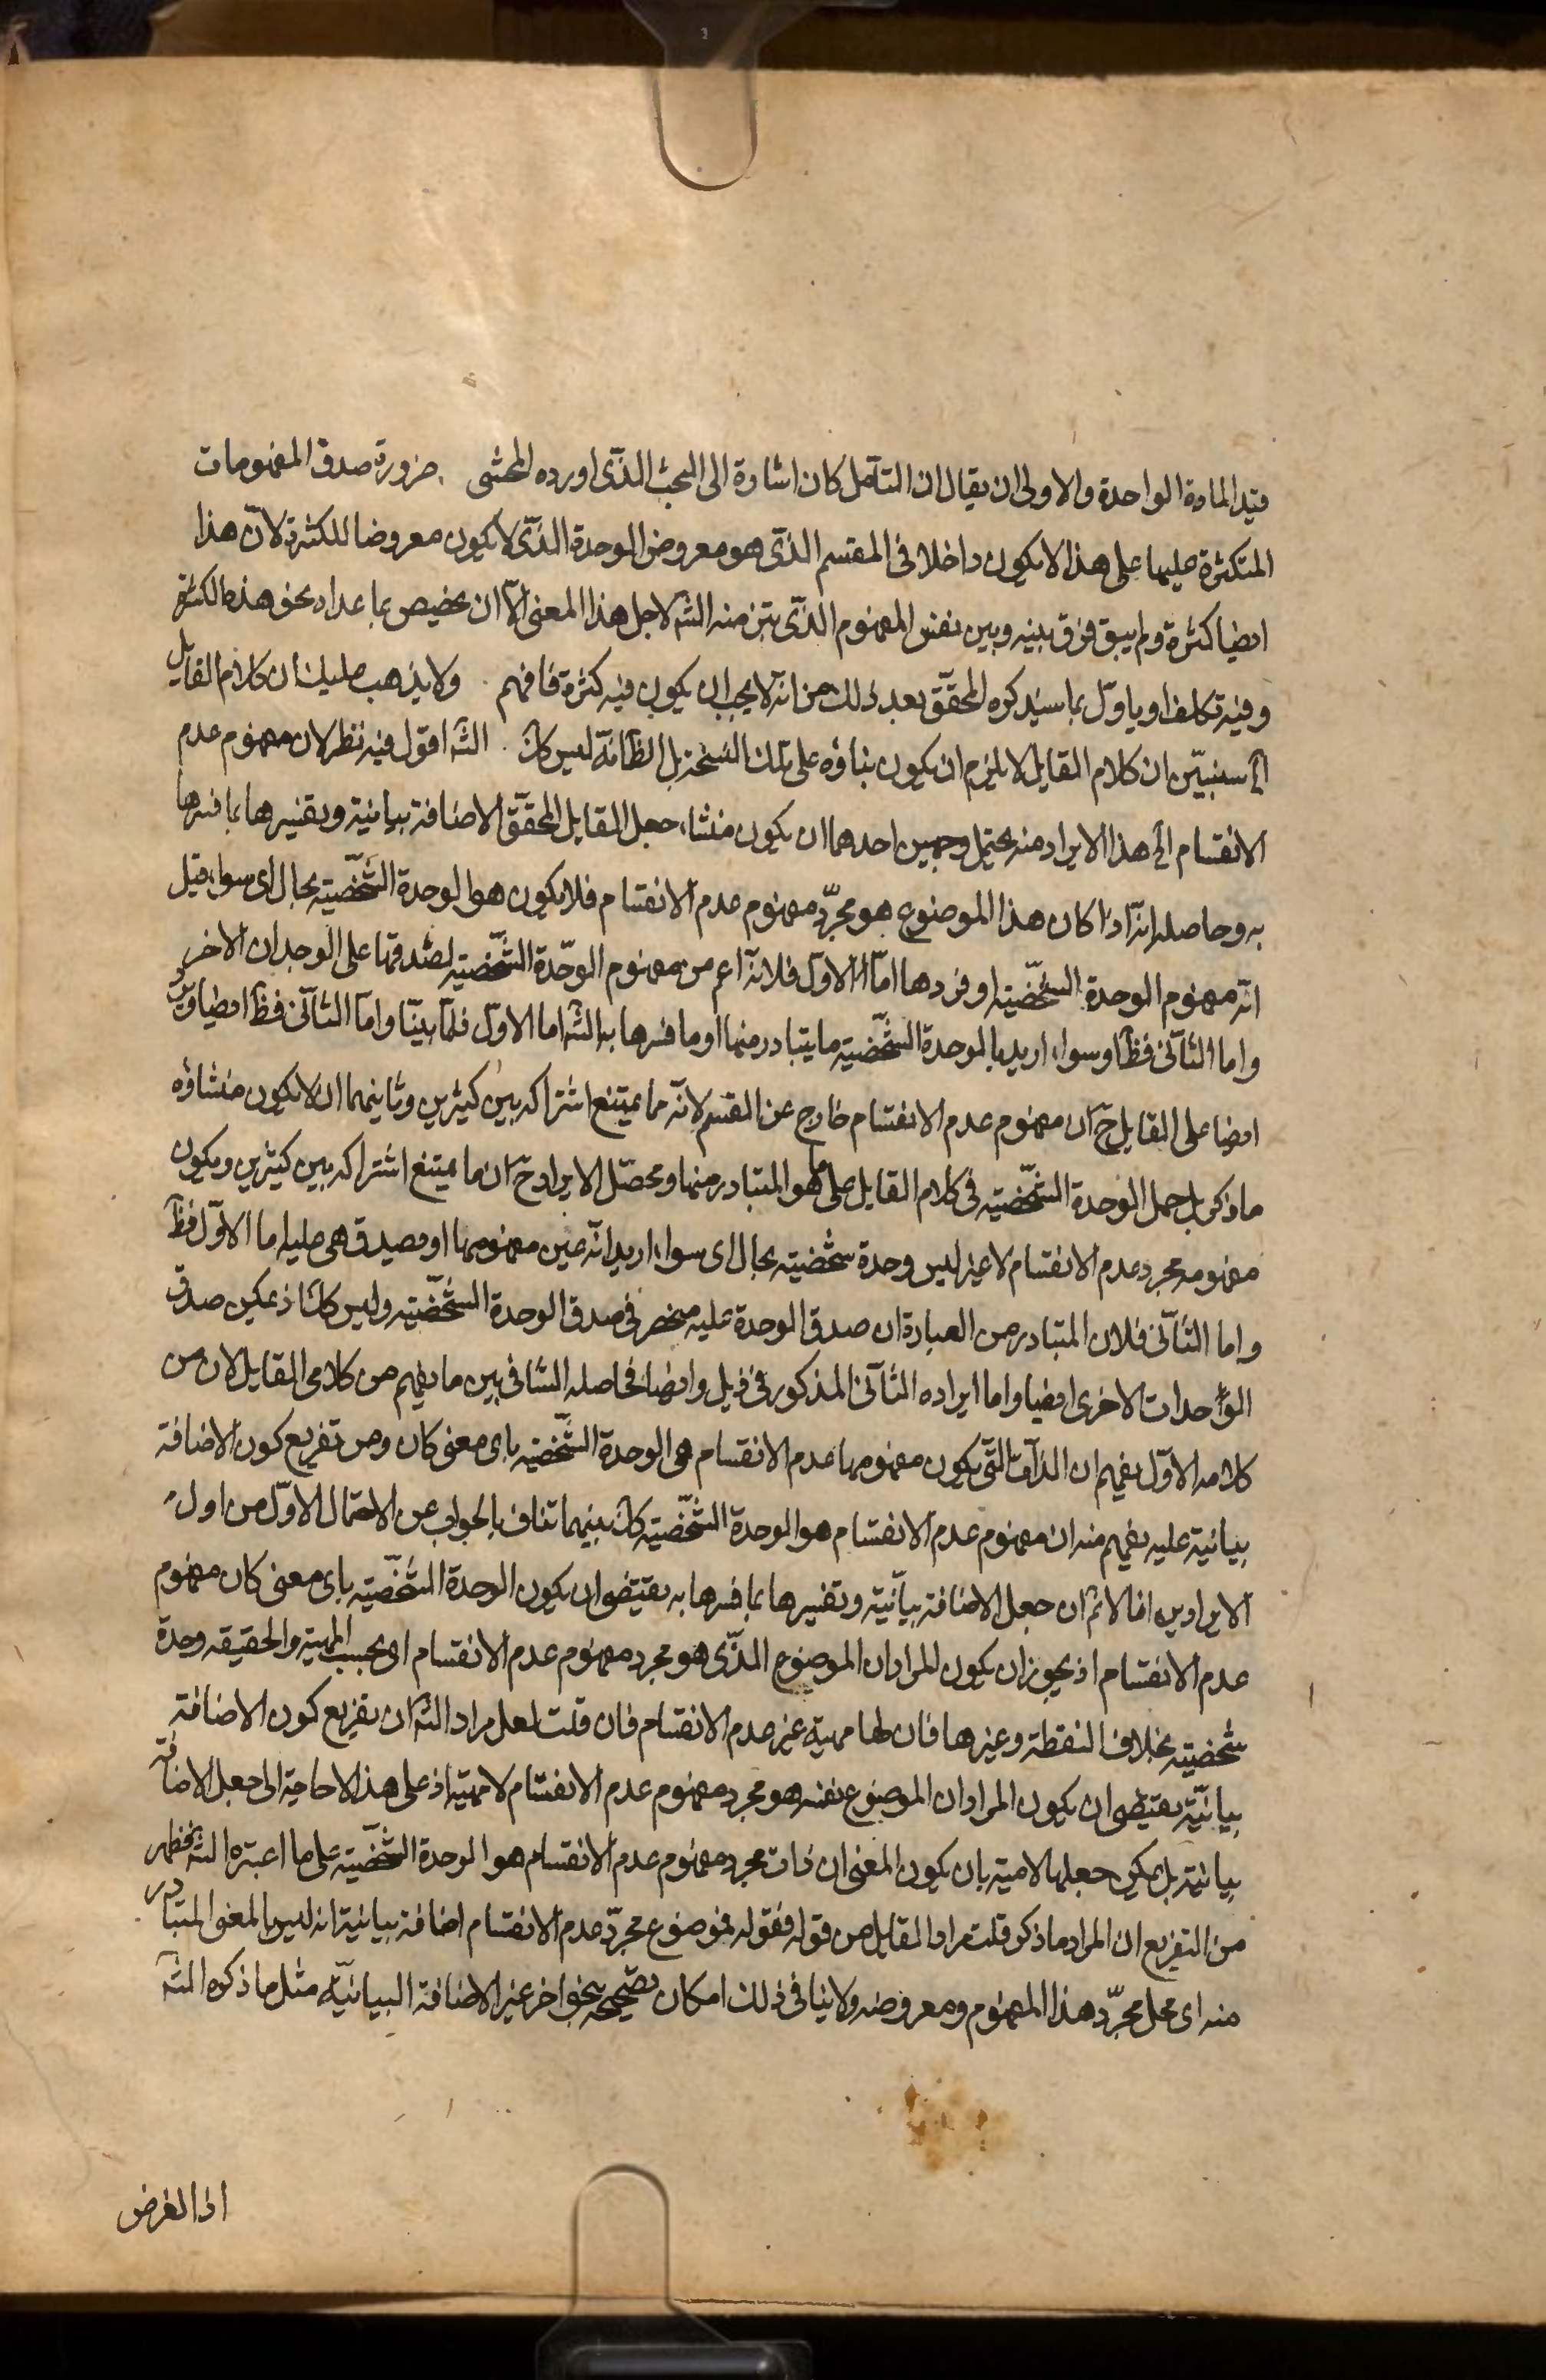 قيد المادة الواحدة والاولى ان يقال ان التآمل كان اشارة الى البحث الذى اورده المحشى . ضرورة صدق المفهومات
المتكثرة عليها على هذا لا يكون داخلا فى المقسم الذى هو معروض الوحدة الذى لا يكون معروضا للكثرة لان هذا
ايضا كثرة ولم يبق فرق بينه وبين نفس المفهوم الذى منه الشه لاجل هذا المعنى الا ان يخصيص بما عدا نحو هذه الكثرة
وفيه تكلف او ياول بما سيذكره المحقق بعد ذلك من انه لا يجب ان يكون فيه كثرة فافهم . ولا يذهب عليك ان كلام القايل
سنبين ان كلام القايل لا يلزم ان يكون بناؤه على تلك النسخة بل الظ انه ليس كك . الشه اقول فيه نظر لان مفهوم عدم
الانقسام الخ هذا الايراد منه يحتمل وجهين احدهما ان يكون منشاء جعل القايل المحقق الاضافة بيانية وتفسيرها بما فسرها
به وحاصله انه اذا كان هذا الموضوع هو مجرد مفهوم عدم الانقسام فلا يكون هو الوحدة الشخصية بحال اى سواء قيل
انه مفهوم الوحدة الشخصية او فردها اما الاول فلانه اعم من مفهوم الوحدة الشخصية لصدقها على الوحدات الاخر
واما الثانى فظ او سواء اريد بالوحدة الشخصية ما يتبادر منها او ما فسرها به الشه اما الاول فلما بينا واما الثانى فظ ايضا ويرد
ايضا على القايل ح ان مفهوم عدم الانقسام خارج عن القسم لانه مما يمتنع اشتراكه بين كثيرين وثانيهما ان لا يكون منشاؤه
ما ذكر بل حمل الوحدة الشخصية فى كلام القايل على ما هو المتبادر منها ومحصل الايراد ح ان ما يمتنع اشتراكه بين كثيرين ويكون
مفهومه مجرد عدم الانقسام لا غير ليس وحدة شخصية بحال اى سواء اريد انه عين مفهومها او يصدق هى عليه اما الاول فظ
واما الثانى فلان المتبادر من العبارة ان صدق الوحدة عليه منحصر فى صدق الوحدة الشخصية وليس كك اذ يمكن صدق
الواحدات الاخرى ايضا واما ايراده الثانى المذكور فى ذيل وايضا فحاصله التنافى بين ما يفهم من كلامى القايل لان من
كلامه الاول يفهم ان الذات التى يكون مفهومها عدم الانقسام هى الوحدة الشخصية باى معنى كان ومن تفريع كون الاضافة
بيانية عليه يفهم منه ان مفهوم عدم الانقسام هو الوحدة الشخصية كك بينهما تناف والجواب عن الاحتمال الاول من اول
الايرادين انا لا نم ان جعل الاضافة بيانية وتفسيرها بما فسرها به يقتضى ان يكون الوحدة الشخصية باى معنى كان مفهوم
عدم الانقسام اذ يجوز ان يكون المراد ان الموضوع الذى هو مجرد مفهوم عدم الانقسام اى بحسب المهية والحقيقه وحدة
شخصية بخلاف النقطة وغيرها فان لها مهية غير عدم الانقسام فان قلت لعل مراد الشه ان تفريع كون الاضافة
بيانية يقتضى ان يكون المراد ان الموضوع نفسه هو مجرد مفهوم عدم الانقسام لا مهيته اذ على هذا لا حاجة الى جعل الاضافة
بيانية بل يمكن جعلها لامية بان يكون المعنى ان ذات مجرد مفهوم عدم الانقسام هو الوحدة الشخصية على ما اعتبره الشه فظهر
من التفريع ان المراد ما ذكر قلت مراد القايل من قوله فقوله فموضوع مجرد عدم الانقسام اضافة بيانية انه ليس بالمعنى المتبادر
منه اى محل مجرد هذا المفهوم ومعروضه ولا ينافى ذلك امكان تصحيحه بنحو اخر غير الاضافة البيانية مثل ما ذكره الشه
اذ الغرض